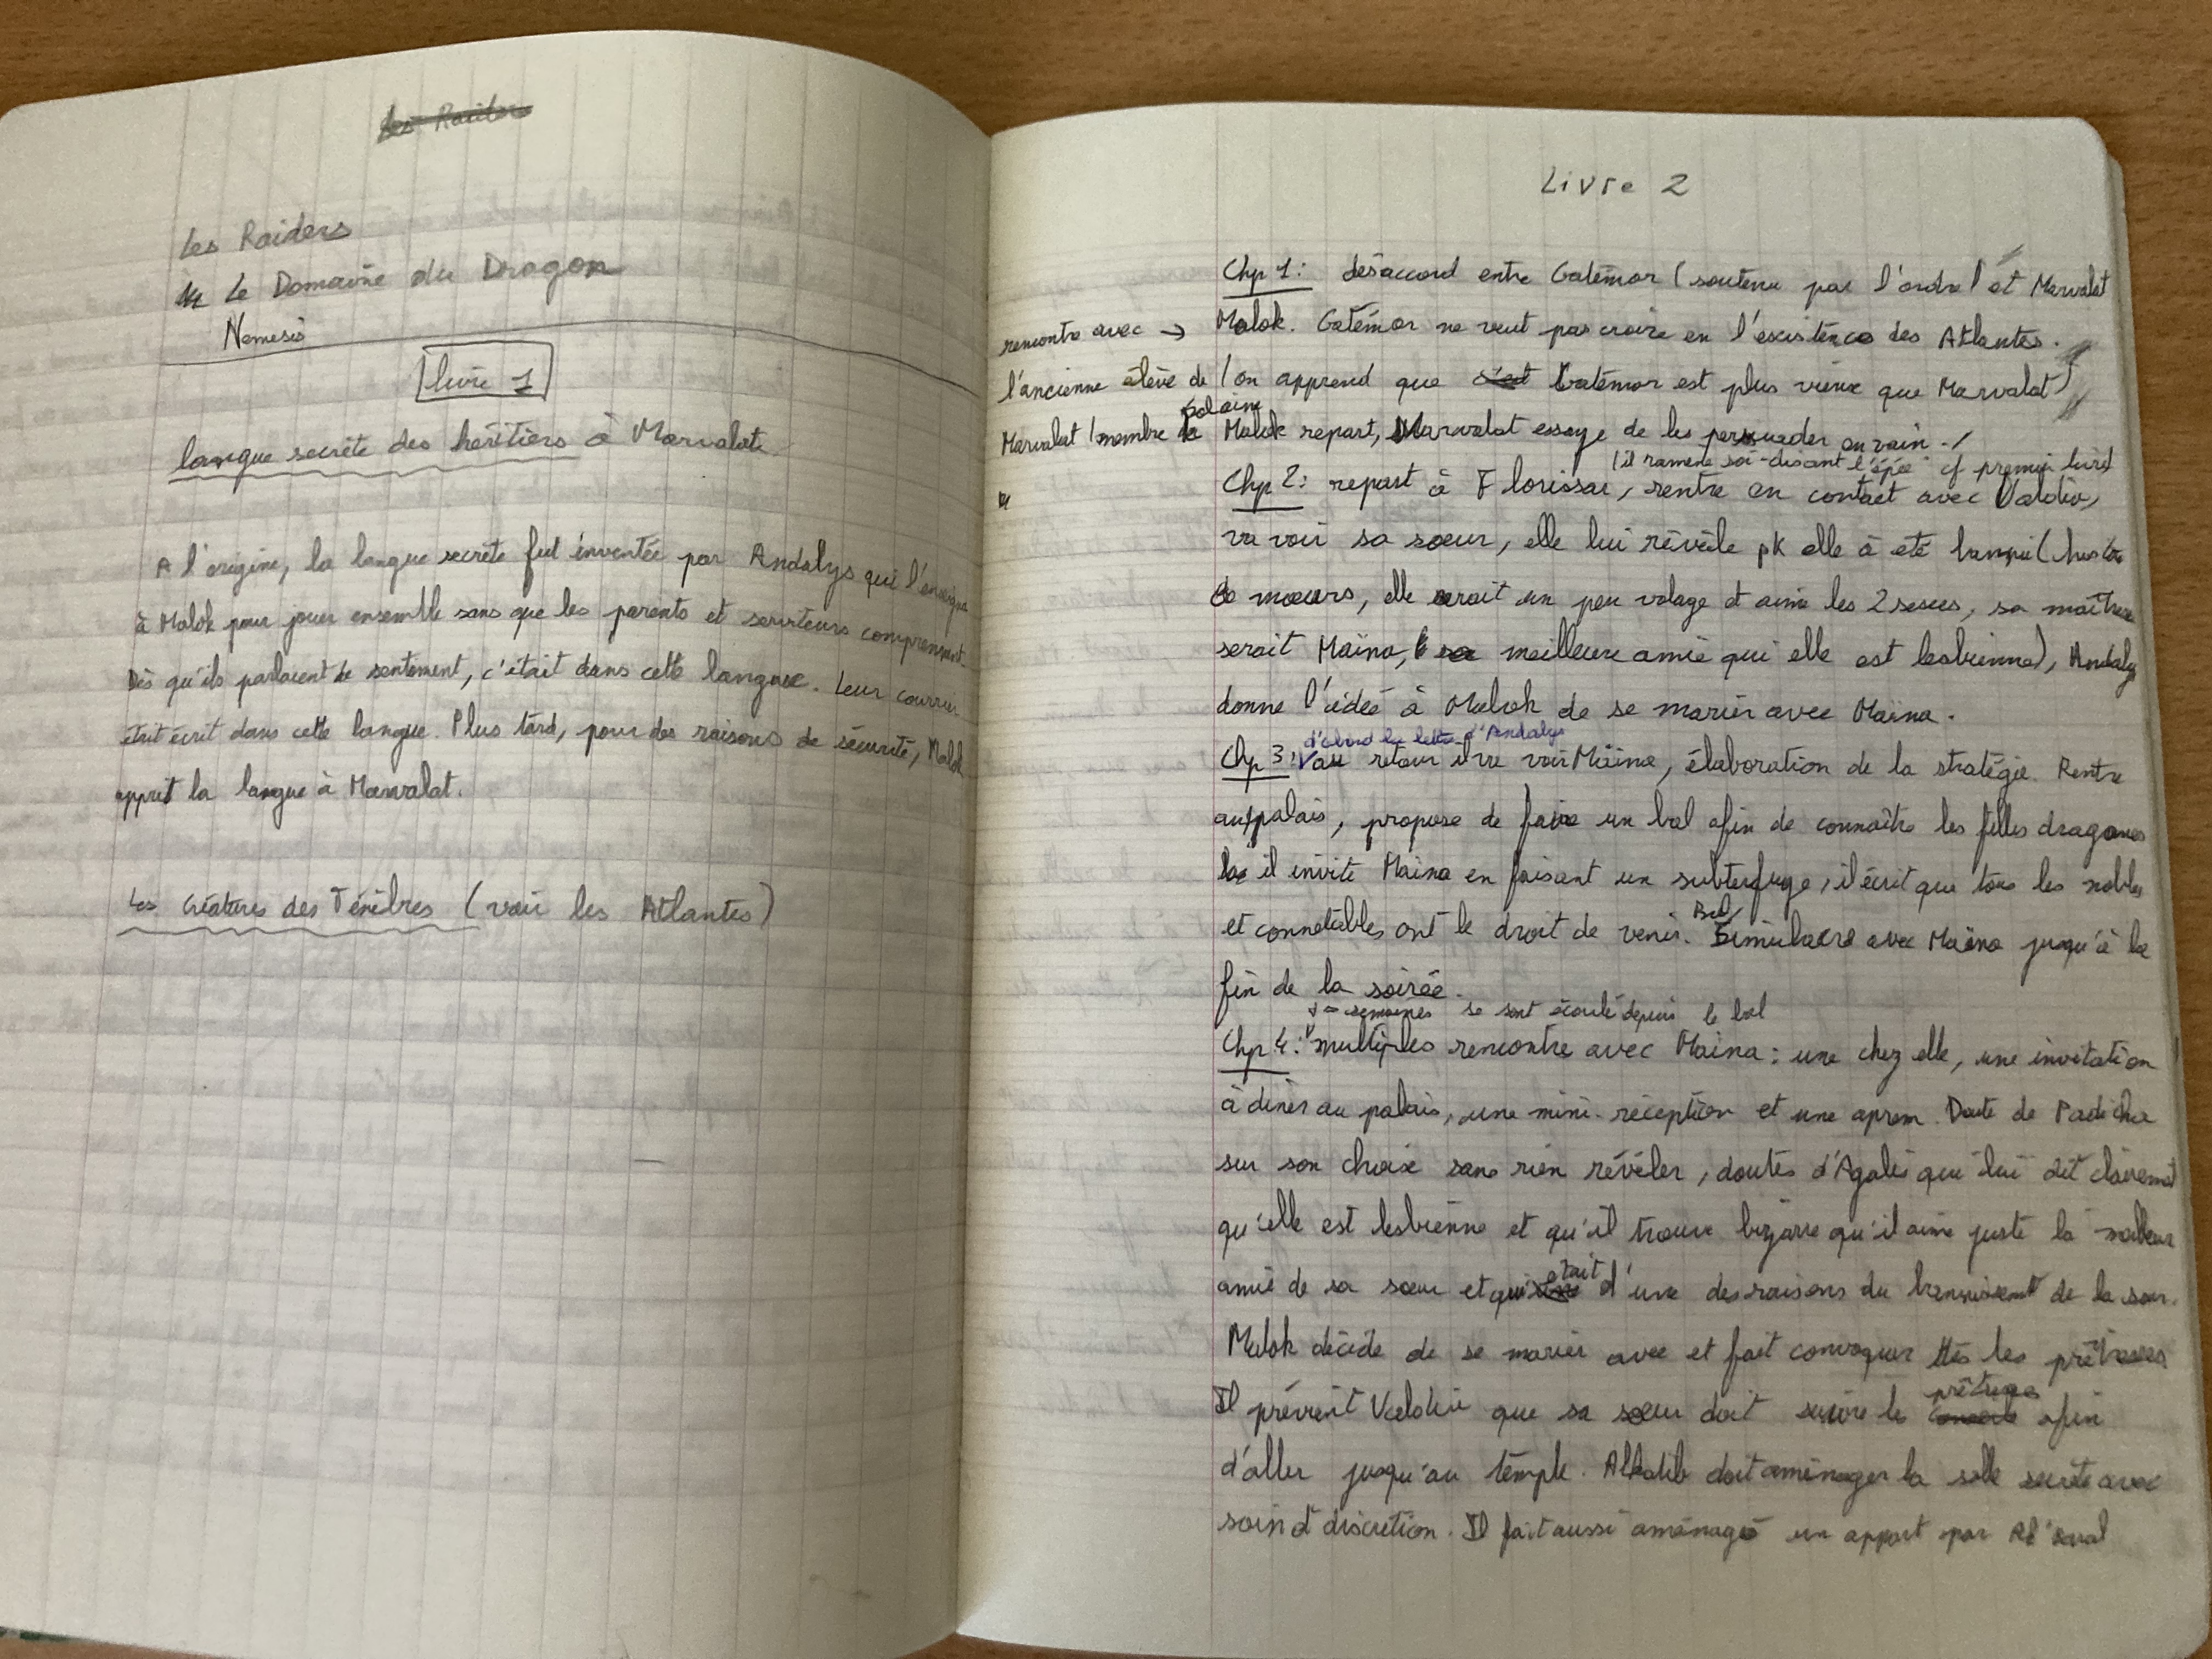 Les Raiders
Les Raiders
Le Domaine du Dragon
Nemesis
livre 1
langue secrète des héritiers à Marvalat
A l'origine, la langue secrète fut inventée par Andalys qui l'enseigna
à Malok pour jouer ensemble sans que les parents et serviteurs comprennent.
Dès qu'ils parlaient de sentiment, c'était dans cette langue. Leur courrier
était écrit dans cette langue. Plus tard, pour des raisons de sécurité, Malok
apprit la langue à Marvalat.
Les Créatures des Ténèbres (voir les Atlantes)
Livre 2
Chp 1: désaccord entre Galémor (soutenu par l'ordre) et Marvalat
Malok. Galémor ne veut pas croire en l'existence des Atlantes.
(on apprend que c'est Galémor est plus vieux que Marvalat)
Malok repart, Marvalat essaye de les persuader en vain.
rencontre avec →
l'ancienne élève de
Marvalat (membre
(il ramène soi-disant l'épée cf premier livre)
Chp 2: repart à Florissac, rentre en contact avec Valdio,
va voir sa soeur, elle lui révèle pk elle à été bannie (histoire
de moeurs, elle serait un peu volage et aime les 2 sexes, sa maîtresse
serait Maïna, sa meilleure amie qui elle est lesbienne), Andalys
donne l'idée à Malok de se marier avec Maïna.
d'abord la lettre d'Andalys
Chp 3: retour il va voir Maïna, élaboration de la stratégie. Rentre
au palais, propose de faire un bal afin de connaître les filles dragonnes
là il invite Maïna en faisant un subterfuge, il écrit que tous les nobles
et connetables ont le droit de venir. Bal, Simulacre avec Maïna jusqu'à la
fin de la soirée.
semaines se sont écoulé depuis le bal
Chp 4: multiples rencontre avec Maïna: une chez elle, une invitation
à diner au palais, une mini-réception et une aprem. Doute de Padicha
sur son choix sans rien révéler, doutes d'Agalis qui lui dit clairement
qu'elle est lesbienne et qu'il trouve bizarre qu'il aime juste la meilleure
amie de sa soeur et qui était d'une des raisons du bannissement de la soeur.
Malok décide de se marier avec et fait convoquer ttes les prêtresses
Il prévient Valdio que sa soeur doit suivre les prêtresses afin
d'aller jusqu'au temple. Alkalib doit aménager la salle secrète avec
soin et discretion. Il fait aussi aménagé un appart par